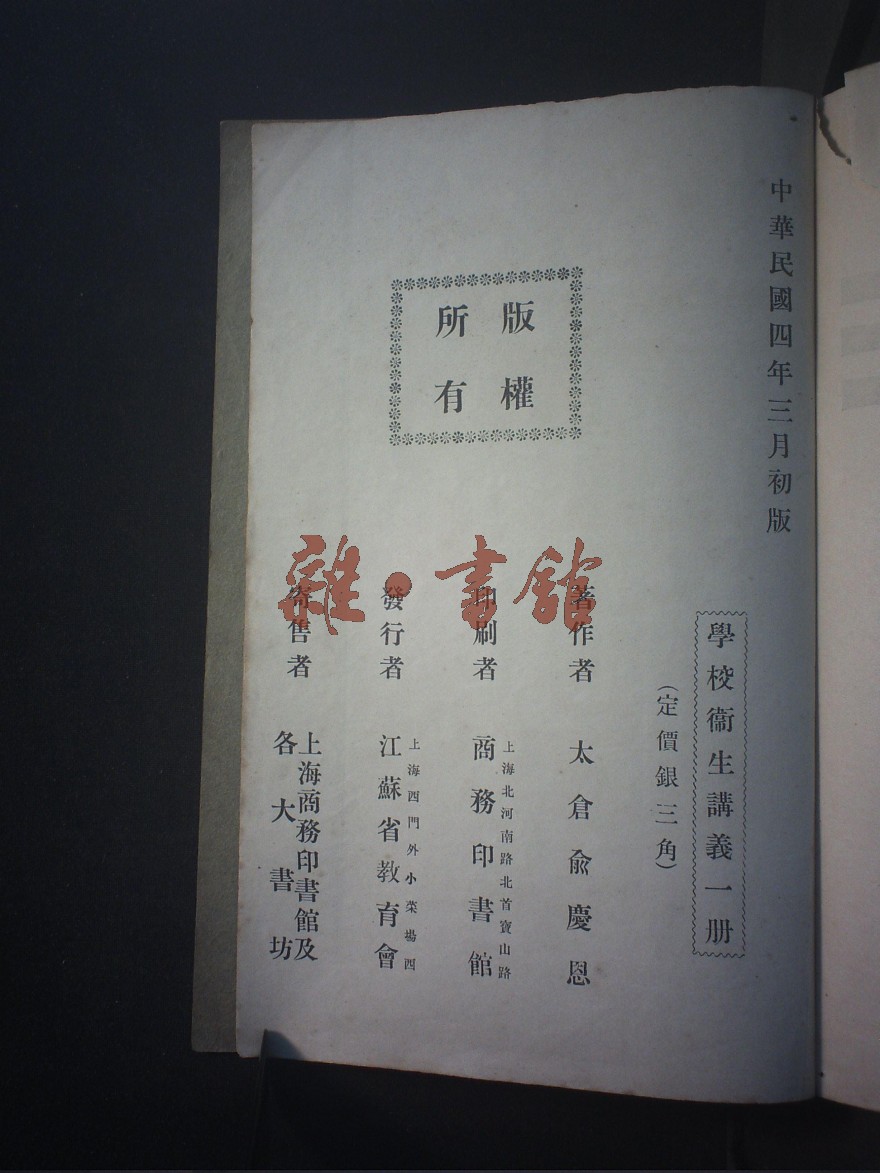 中華民國四年三月初版
學校衞生講義一册
（定價銀三角）
版權
所有
著作者 太倉俞慶恩
印刷者 上海北河南路北首寶山路 商務印書館
發行者 上海西門外小菜場西 江蘇省教育會
寄售者 上海商務印書館及
各大書坊
雜·書館